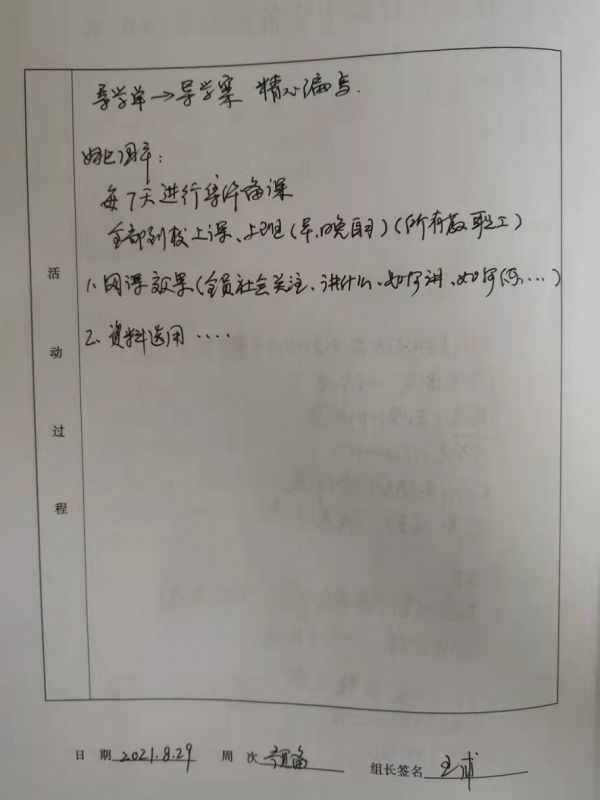 导学单→导学案 精心编写.
每7天进行集体备课
全部到校上课、上班(早、晚自习)(所有教职工)
1. 网课效果(全员社会关注、讲什么、如何讲、如何……)
2. 资料选用 ....
活动过程
日期 2021.8.29 周次 预备 组长签名